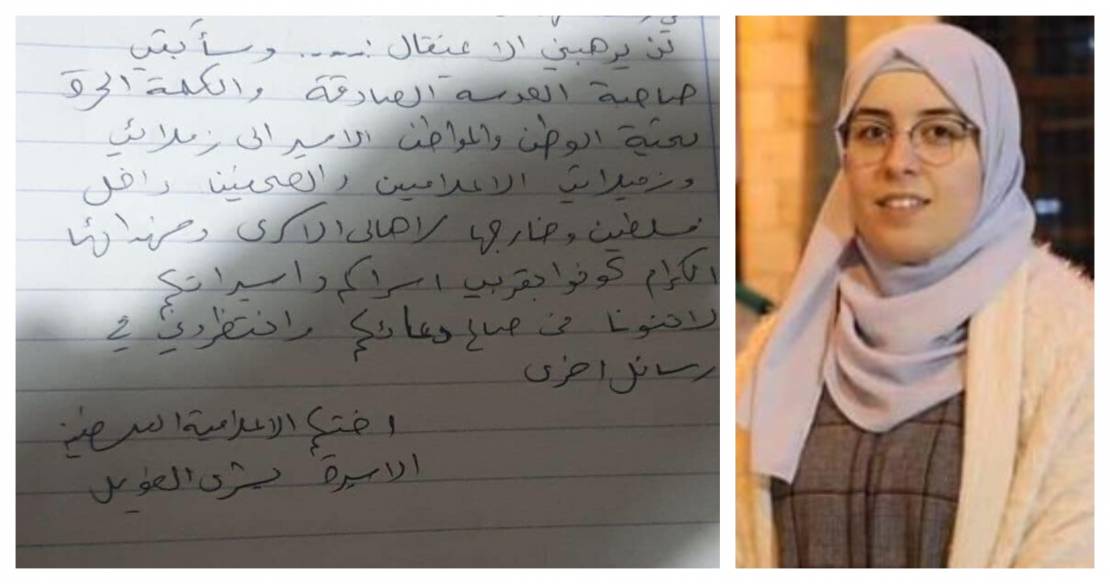 لن يرهبني الاعتقال !.... وسأبقى
صاحبة العدسة الصادقة والكلمة الحرة
تحية الوطن والمواطن الاسير الى زملائي
وزميلاتي الاعلاميين والصحفيين داخل
فلسطين وخارجها لاهالي الاسرى وشهدائها
الكرام كونوا بقرب اسراكم واسيراتكم
لا تنسونا من صالح دعائكم وانتظروني في
رسائل اخرى
اختكم الاعلامية الفلسطينية
الاسيرة بشرى الطويل